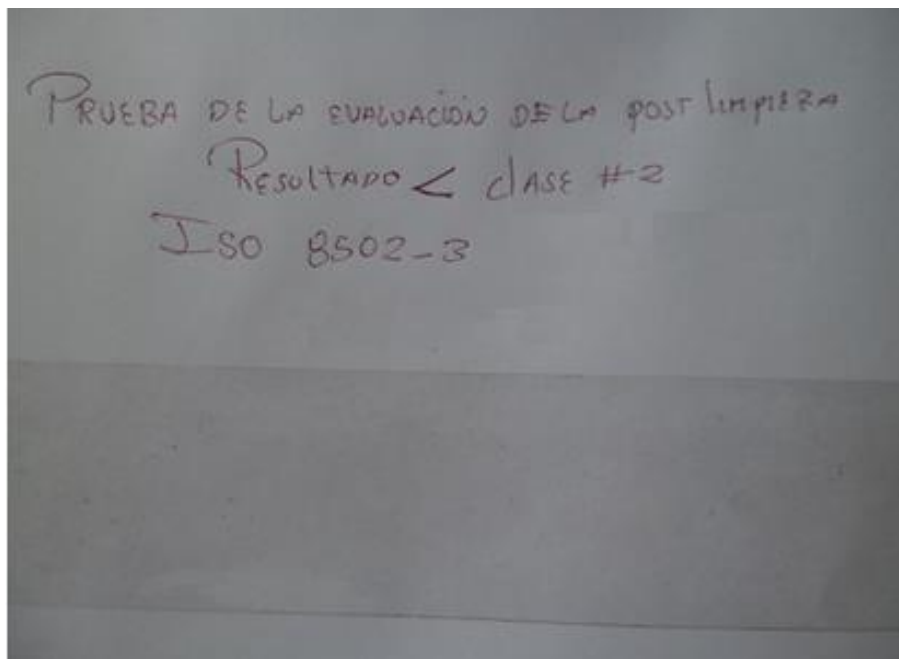 PRUEBA DE LA EVALUACIÓN DE LA POST limpiEZA
RESULTADO < clASE #2
ISO 8502-3